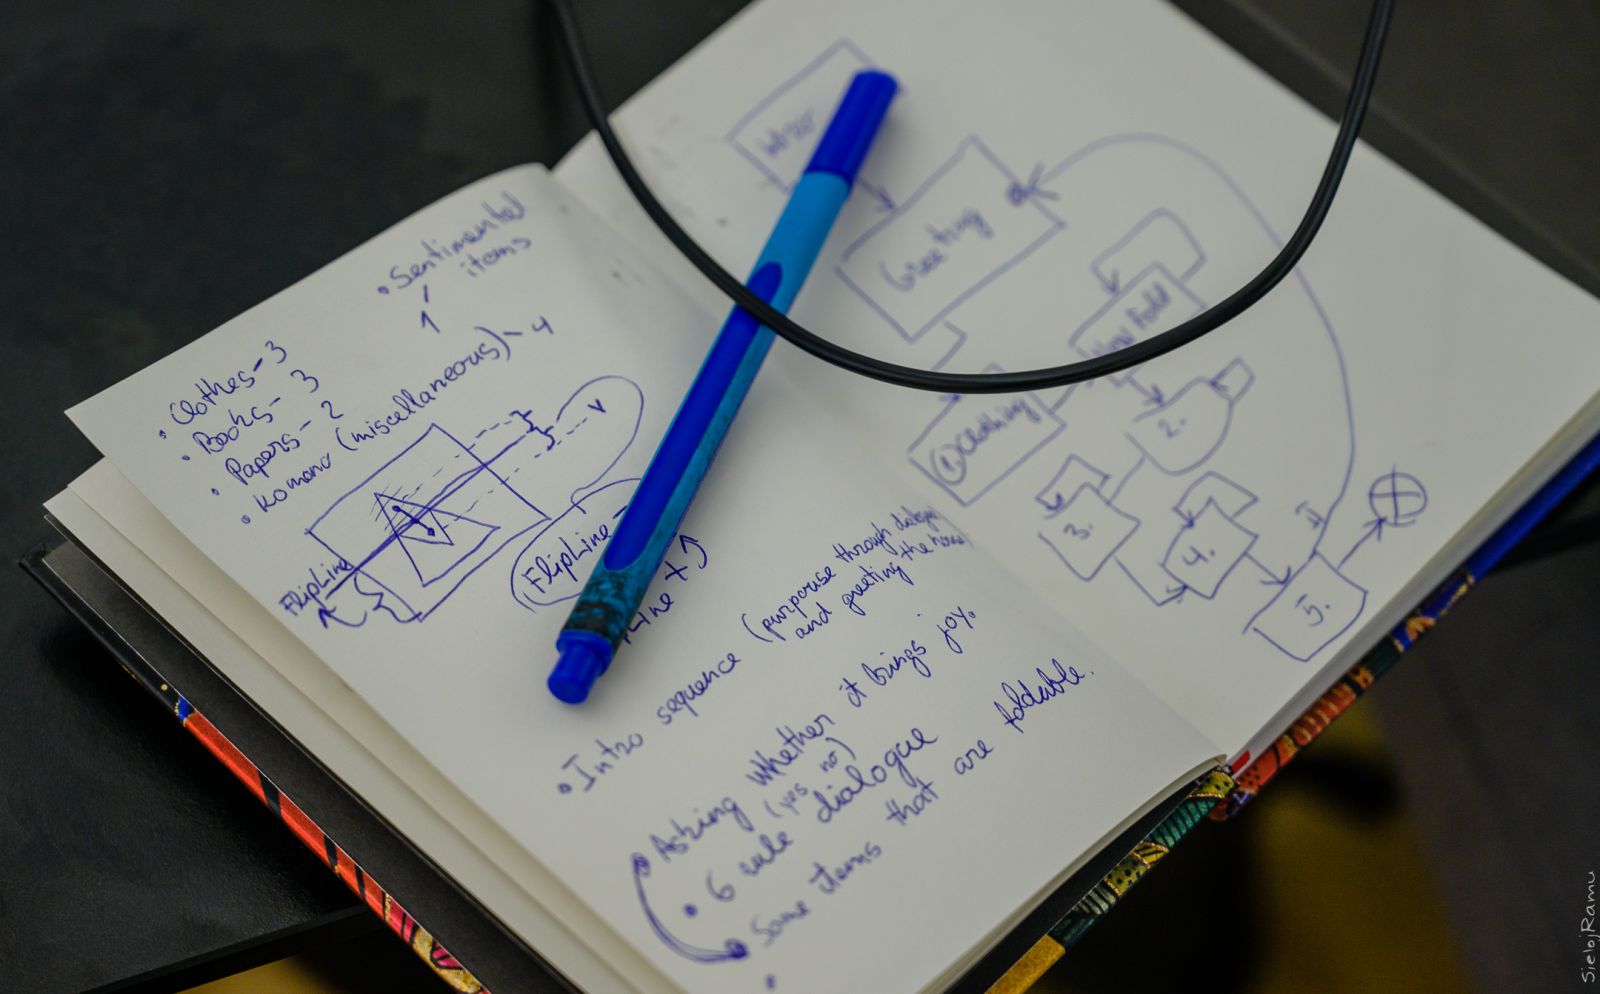 • Sentimental
items
• Clothes - 3
• Books - 3
• Papers - 2
• Komono (miscellaneous) - 4
FlipLine
FlipLine -
Line +
• Intro sequence (purpouse through dialogue
and greeting the house)
• Asking whether it brings joy.
(yes no)
• 6 rule dialogue
• Some items that are foldable.
Intro
Greeting
How Fold
① Clothing
2.
3.
4.
5.
SielojRamu